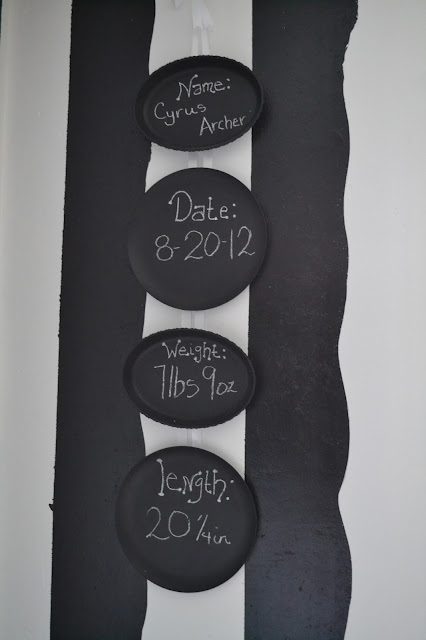 Name:
Cyrus
Archer
Date:
8-20-12
Weight:
7lbs 9oz
length:
20 1/4 in